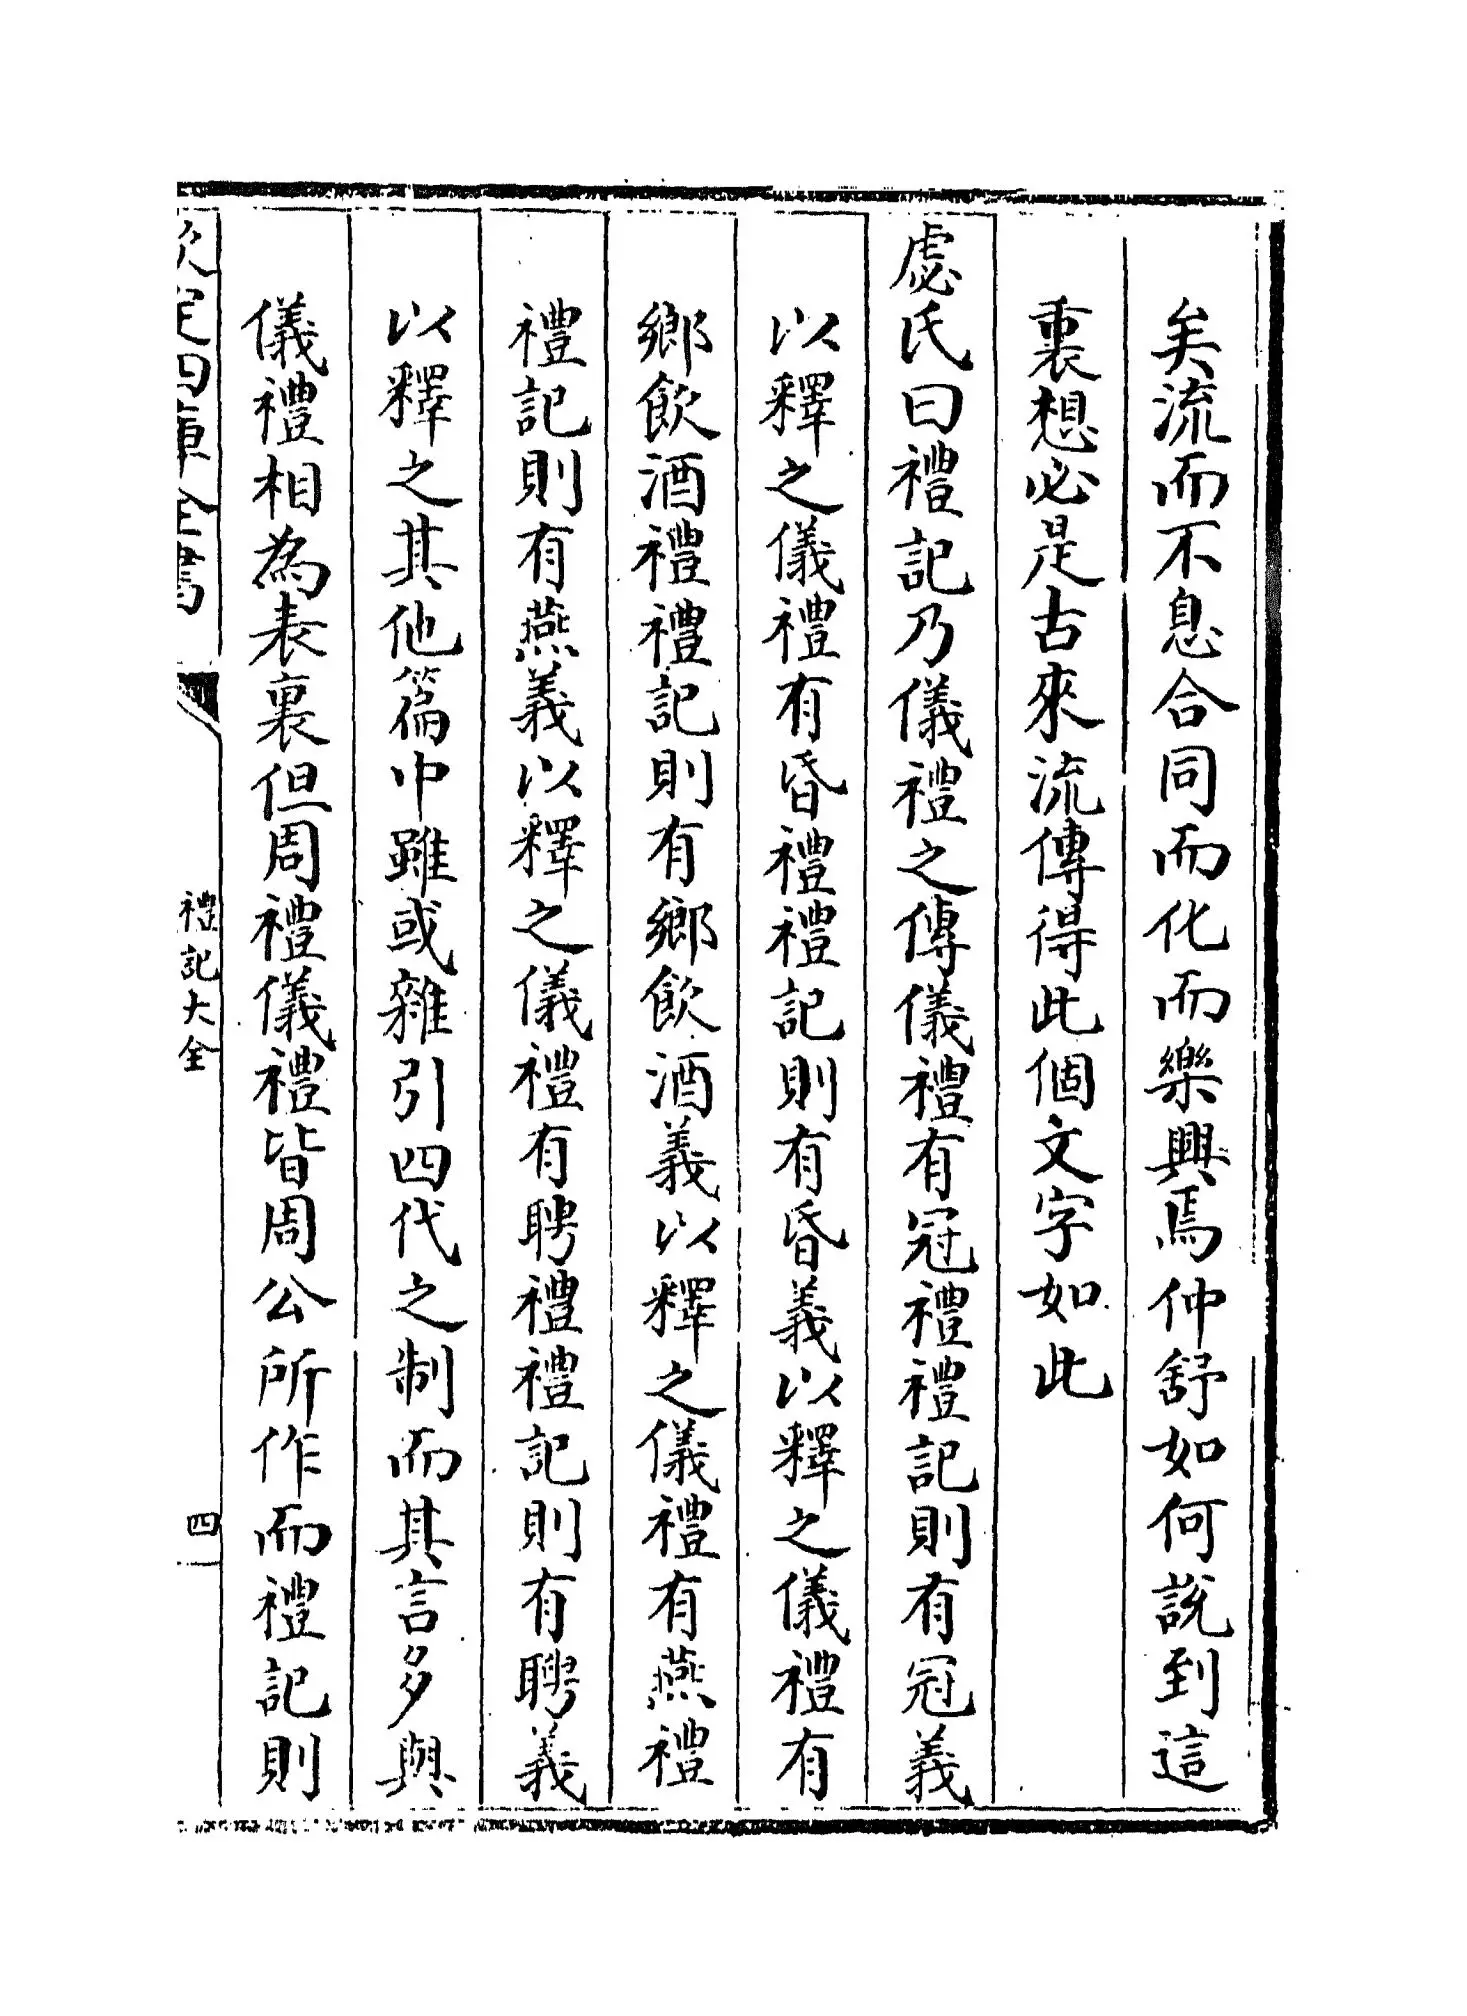 矣流而不息合同而化而樂興焉仲舒如何說到這
裏想必是古來流傳得此個文字如此
處氏曰禮記乃儀禮之傳儀禮有冠禮禮記則有冠義
以釋之儀禮有昏禮禮記則有昏義以釋之儀禮有
鄉飲酒禮禮記則有鄉飲酒義以釋之儀禮有燕禮
禮記則有燕義以釋之儀禮有聘禮禮記則有聘義
以釋之其他篇中雖或雜引四代之制而其言多與
儀禮相為表裏但周禮儀禮皆周公所作而禮記則
欽定四庫全書
禮記大全
四